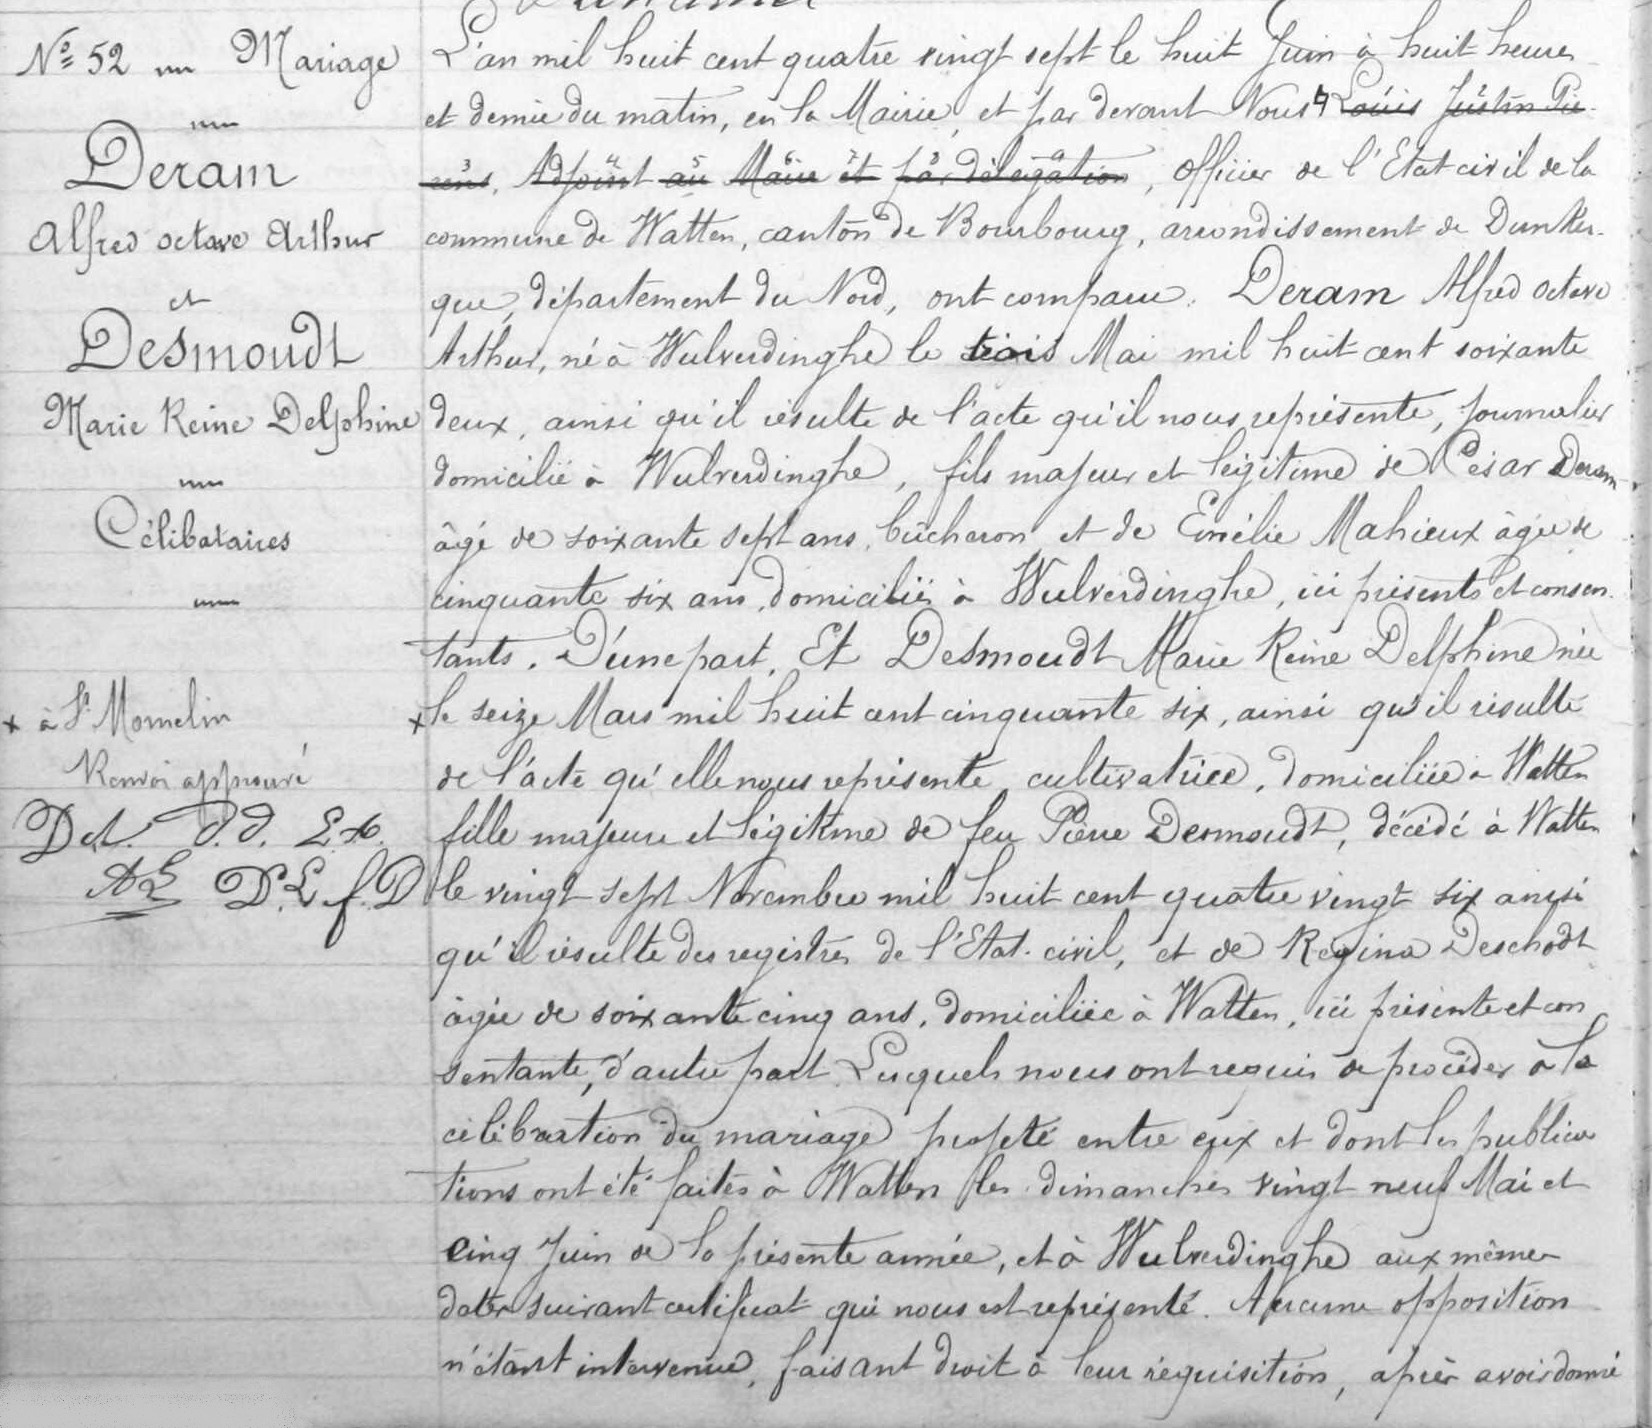 Nº 52 Mariage
Deram
Alfred octave Arthur
et
Desmoudt
Marie Reine Delphine
Célibataires
x à St Momelin
Renvoi approuvé
L'an mil huit cent quatre vingt sept le huit Juin à huit heures
et demie du matin, en la Mairie, et par devant Nous Louis Justin Pie
rens, Adjoint au Maire et par délégation, Officier de l'Etat civil de la
commune de Watten, canton de Bourbourg, arrondissement de Dunker-
que, département du Nord, ont comparu. Deram Alfred octave
Arthur, né à Wulverdinghe le trois Mai mil huit cent soixante
deux, ainsi qu'il résulte de l'acte qu'il nous représente, journalier
domicilié à Wulverdinghe, fils majeur et légitime de César Deram
âgé de soixante sept ans, bûcheron et de Emélie Mahieux âgée de
cinquante six ans, domiciliés à Wulverdinghe, ici présents et consen-
tants. D'une part. Et Desmoudt Marie Reine Delphine née
x le seize Mars mil huit cent cinquante six, ainsi qu'il résulte
de l'acte qu'elle nous représente, cultivatrice, domiciliée à Watten
fille majeure et légitime de feu Pierre Desmoudt, décédé à Watten
le vingt sept Novembre mil huit cent quatre vingt six ainsi
qu'il résulte des registres de l'Etat-civil, et de Regina Deschodt
âgée de soixante cinq ans, domiciliée à Watten, ici présente et con
sentante, d'autre part. Lesquels nous ont requis de procéder à la
célébration du mariage projeté entre eux et dont les publica
tions ont été faites à Watten les dimanches vingt neuf Mai et
cinq Juin de la présente année, et à Wulverdinghe aux mêmes
dates suivant certificat qui nous est représenté. Aucune opposition
n'étant intervenue, faisant droit à leur réquisition, après avoir donné